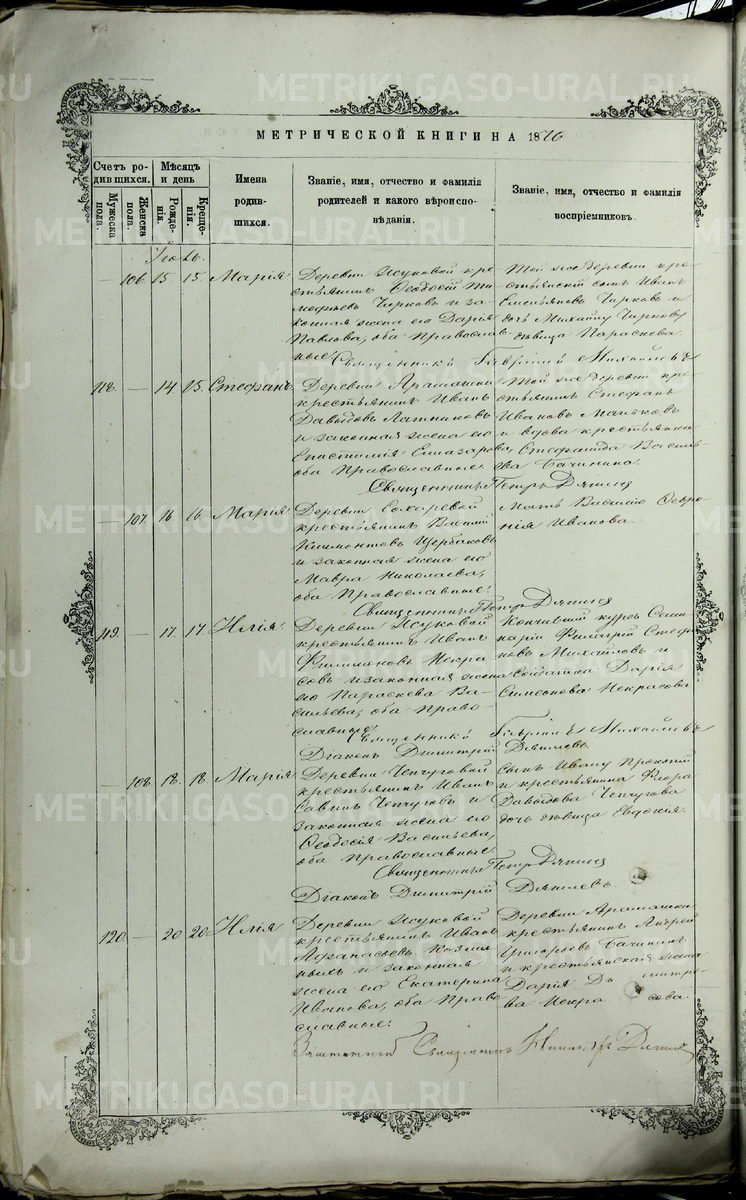 МЕТРИЧЕСКОЙ КНИГИ НА 1876
Счетъ ро-
дившихся.
Мужеска
пола.
Женска
пола.
Мѣсяцъ
и день
Рожде-
нія.
Креще-
нія.
Имена
родив-
шихся.
Званіе, имя, отчество и фамилія
родителей и какого вѣроиспо-
вѣданія.
Званіе, имя, отчество и фамилія
воспріемниковъ.
Іюль.
— 106. 15. 15. Марія
Деревни кре-
стьянинъ Ѳеодосій Ти-
моѳеевъ Чирковъ и за-
конная жена его Дарія
Павлова, оба Православ-
ные.
Той же деревни кре-
стьянскій сынъ Иванъ
Емельяновъ Чирковъ и
дочь Михаила Чиркова
дѣвица Параскева.
Священникъ Гавріилъ Михайловъ
118. — 14 15. Стефанъ
Деревни Арамашки
крестьянинъ Иванъ
Давыдовъ Латниковъ
и законная жена его
Елиазарова,
оба Православные.
Той же деревни кре-
стьянинъ Стефанъ
Ивановъ Маньковъ
и вдова крестьянка
Стефанида Василь-
ева Бачинина.
Священникъ Петръ
— 107. 16. 16 Марія
Деревни
крестьянинъ Василій
Щербаковъ
и законная жена его
Мавра Николаева,
оба Православные.
Мать Василія Ѳевро-
нія Иванова.
Священникъ Петръ
119. — 17. 17. Илія
Деревни
крестьянинъ Иванъ
Филимоновъ Некра-
совъ и законная жена
его Параскева Ва-
сильева, оба Право-
славные.
Кончившій курсъ Семи-
наріи Стефа-
новъ Михайловъ и
Солдатка Дарія
Симеонова Некрасова.
Священникъ Гавріилъ Михайловъ
Діаконъ Димитрій
— 108. 18. 18 Марія
Деревни Чепчуговой
крестьянинъ Иванъ
Савинъ Чепчуговъ и
законная жена его
Ѳеодосія Васильева,
оба православные.
Сынъ Ивана Прокопій
и крестьянина Флора
Давыдова Чепчугова
дочь дѣвица Евдокія.
Священникъ Петръ
Діаконъ Димитрій
120. — 20. 20. Илія
Деревни
крестьянинъ Иванъ
Аѳанасьевъ
и законная
жена его Екатерина
Иванова, оба Право-
славные.
Деревни Арамашки
крестьянинъ Андрей
Григорьевъ Бачининъ
и крестьянская жена
Дарія Димитріе-
ва Некрасова.
Священникъ
METRIKI.GASO-URAL.RU